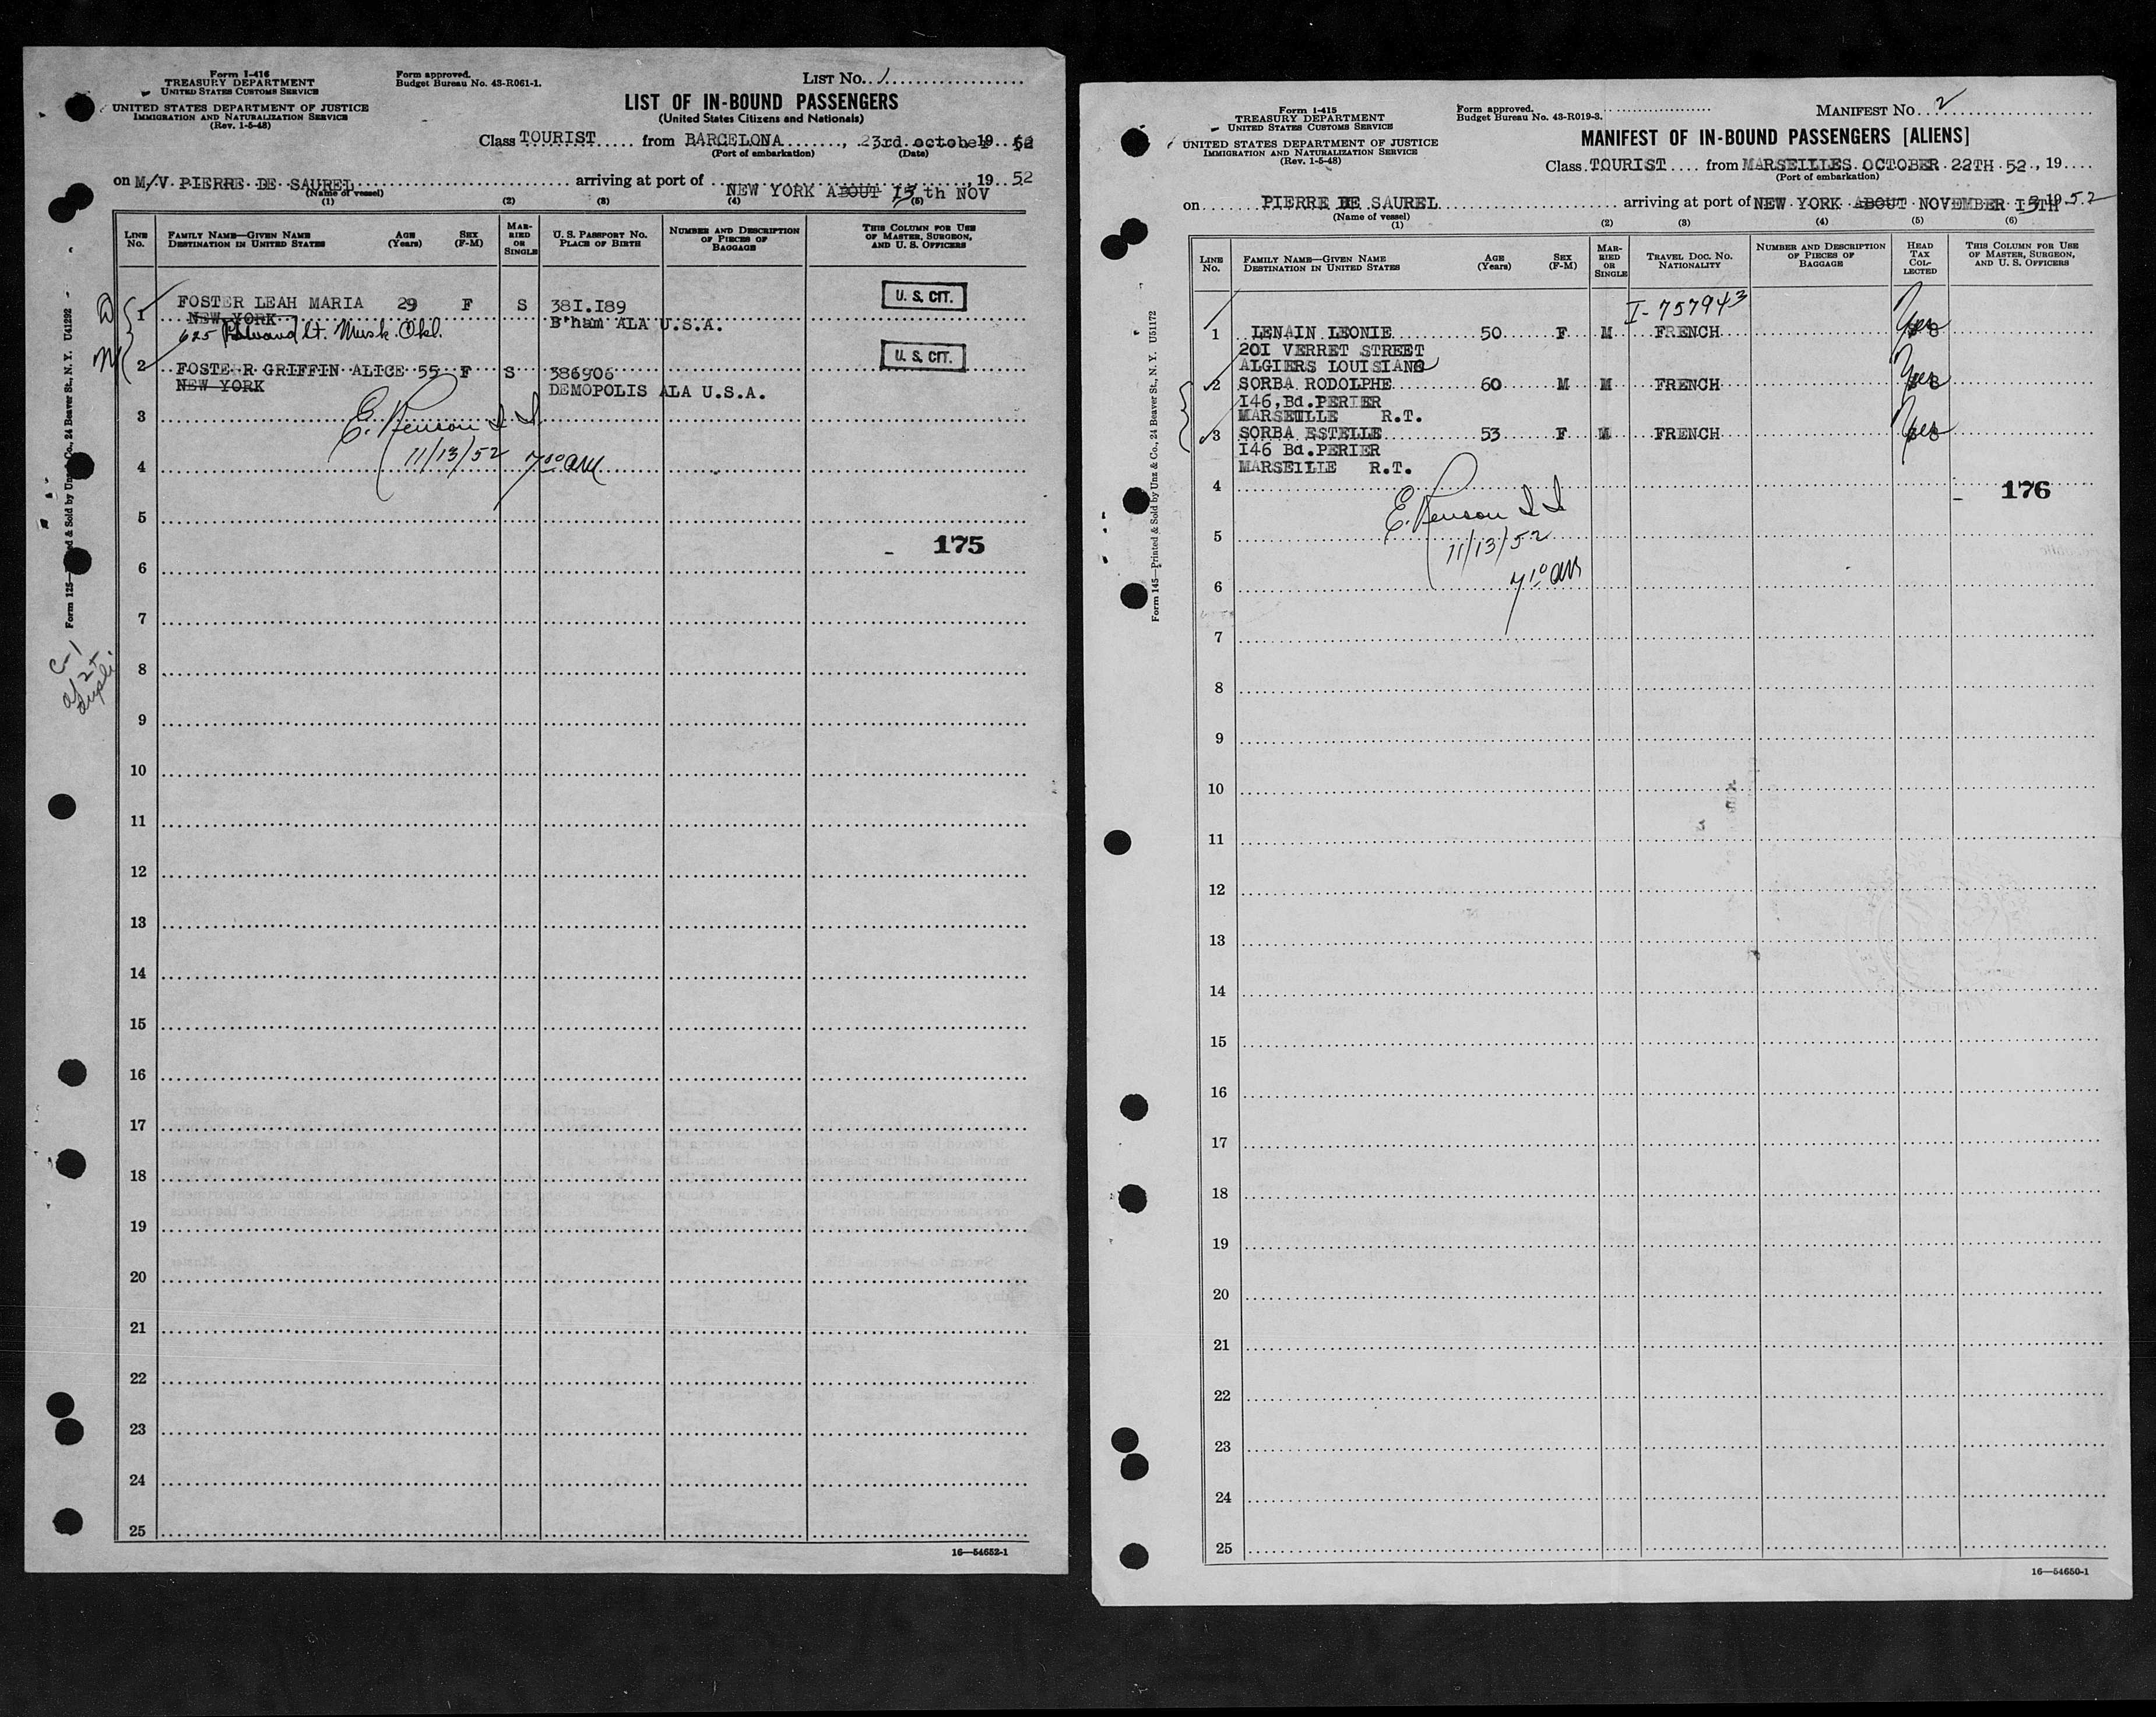 Form I-416
TREASURY DEPARTMENT
UNITED STATES CUSTOMS SERVICE
UNITED STATES DEPARTMENT OF JUSTICE
IMMIGRATION AND NATURALIZATION SERVICE
(Rev. 1-5-48)
Form approved.
Budget Bureau No. 43-R061-1.
LIST NO. 1
LIST OF IN-BOUND PASSENGERS
(United States Citizens and Nationals)
Class TOURIST from BARCELONA, 23rd october 19 52
(Port of embarkation) (Date)
on M/V. PIERRE DE SAUREL arriving at port of NEW YORK ABOUT 13 th NOV, 19 52
(Name of vessel)
(1) (2) (3) (4) (5)
LINE No. FAMILY NAME—GIVEN NAME DESTINATION IN UNITED STATES AGE (Years) SEX (F-M) MARRIED OR SINGLE U. S. PASSPORT NO. PLACE OF BIRTH NUMBER AND DESCRIPTION OF PIECES OF BAGGAGE THIS COLUMN FOR USE OF MASTER, SURGEON, AND U. S. OFFICERS
1 FOSTER LEAH MARIA 29 F S 38I.I89 U. S. CIT.
NEW YORK B'ham ALA U.S.A.
625 St. Musk. Okl.
2 FOSTER GRIFFIN ALICE 55 F S 386906 U. S. CIT.
NEW YORK DEMOPOLIS ALA U.S.A.
3
E. Renson I I
4
11/13/52 7 00 AM
5
175
6
7
8
9
10
11
12
13
14
15
16
17
18
19
20
21
22
23
24
25
16—54652-1
Form 125—Printed & Sold by Unz & Co., 24 Beaver St., N. Y. U41292
C-1
Form I-415
TREASURY DEPARTMENT
UNITED STATES CUSTOMS SERVICE
UNITED STATES DEPARTMENT OF JUSTICE
IMMIGRATION AND NATURALIZATION SERVICE
(Rev. 1-5-48)
Form approved.
Budget Bureau No. 43-R019-3.
MANIFEST NO. 2
MANIFEST OF IN-BOUND PASSENGERS [ALIENS]
Class TOURIST from MARSEILLES OCTOBER 22TH 52, 19
(Port of embarkation)
on PIERRE DE SAUREL arriving at port of NEW YORK ABOUT NOVEMBER I3TH 19 52
(Name of vessel)
(1) (2) (3) (4) (5) (6)
LINE No. FAMILY NAME—GIVEN NAME DESTINATION IN UNITED STATES AGE (Years) SEX (F-M) MARRIED OR SINGLE TRAVEL DOC. NO. NATIONALITY NUMBER AND DESCRIPTION OF PIECES OF BAGGAGE HEAD TAX COLLECTED THIS COLUMN FOR USE OF MASTER, SURGEON, AND U. S. OFFICERS
I-757943
1 LENAIN LEONIE 50 F M FRENCH Yes
20I VERRET STREET
ALGIERS LOUISIANA
2 SORBA RODOLPHE 60 M M FRENCH Yes
I46, Bd. PERIER
MARSEILLE R.T.
3 SORBA ESTELLE 53 F M FRENCH Yes
I46 Bd. PERIER
MARSEILLE R.T.
4
176
E. Renson I I
5
11/13/52
7 10 AM
6
7
8
9
10
11
12
13
14
15
16
17
18
19
20
21
22
23
24
25
16—54650-1
Form 145—Printed & Sold by Unz & Co., 24 Beaver St., N. Y. U51172